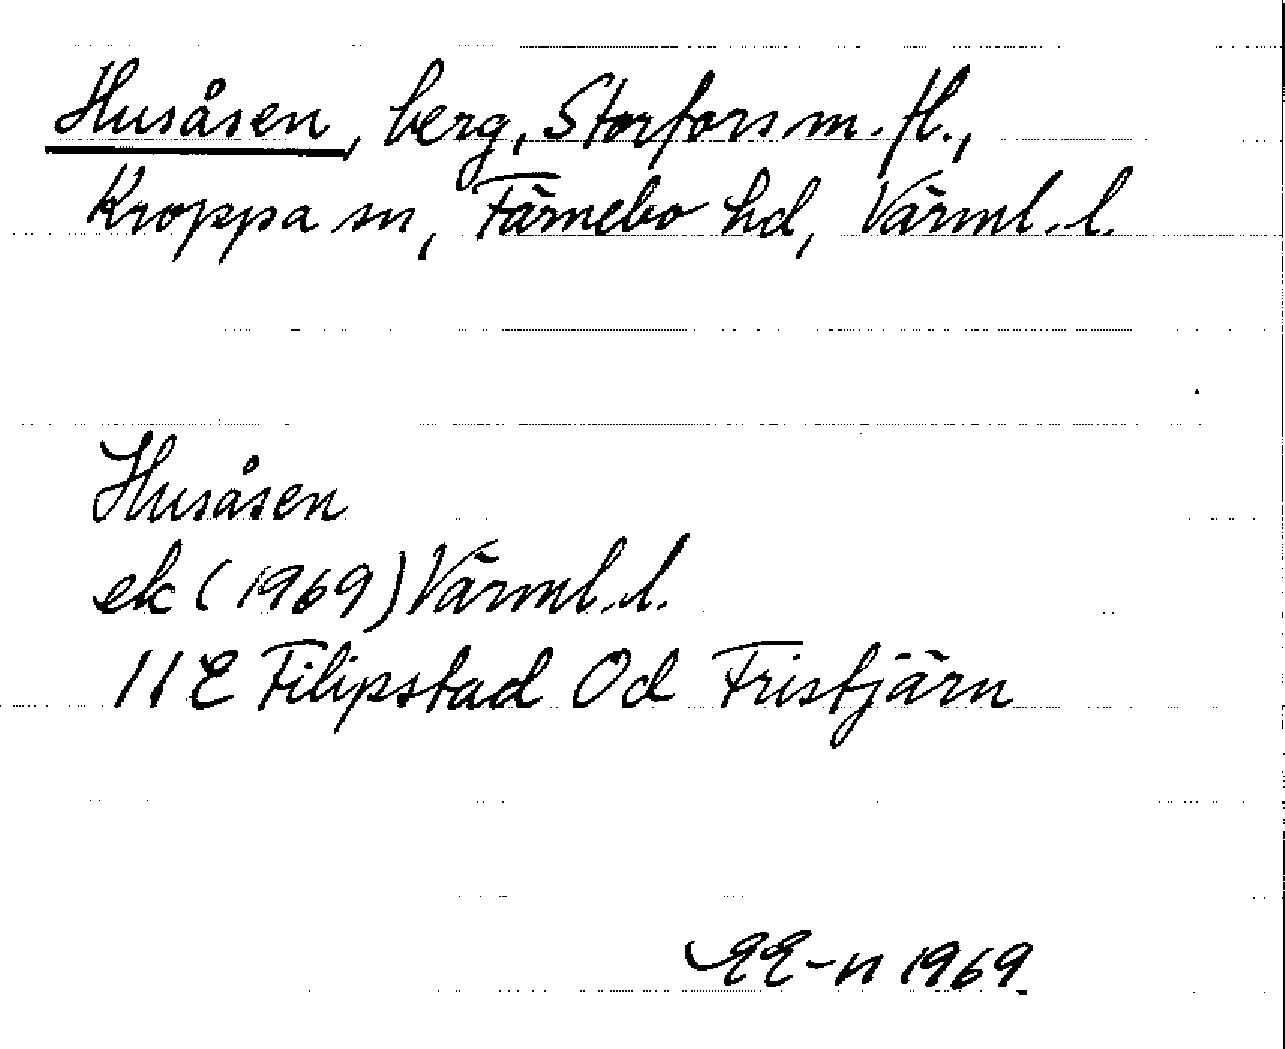 Husåsen, berg, Storfors m. fl.,
Kroppa sn, Färnebo hd, Värml. l.
Husåsen
ek (1969) Värml. l.
11E Filipstad 0d Fristjärn
EE-n 1969.